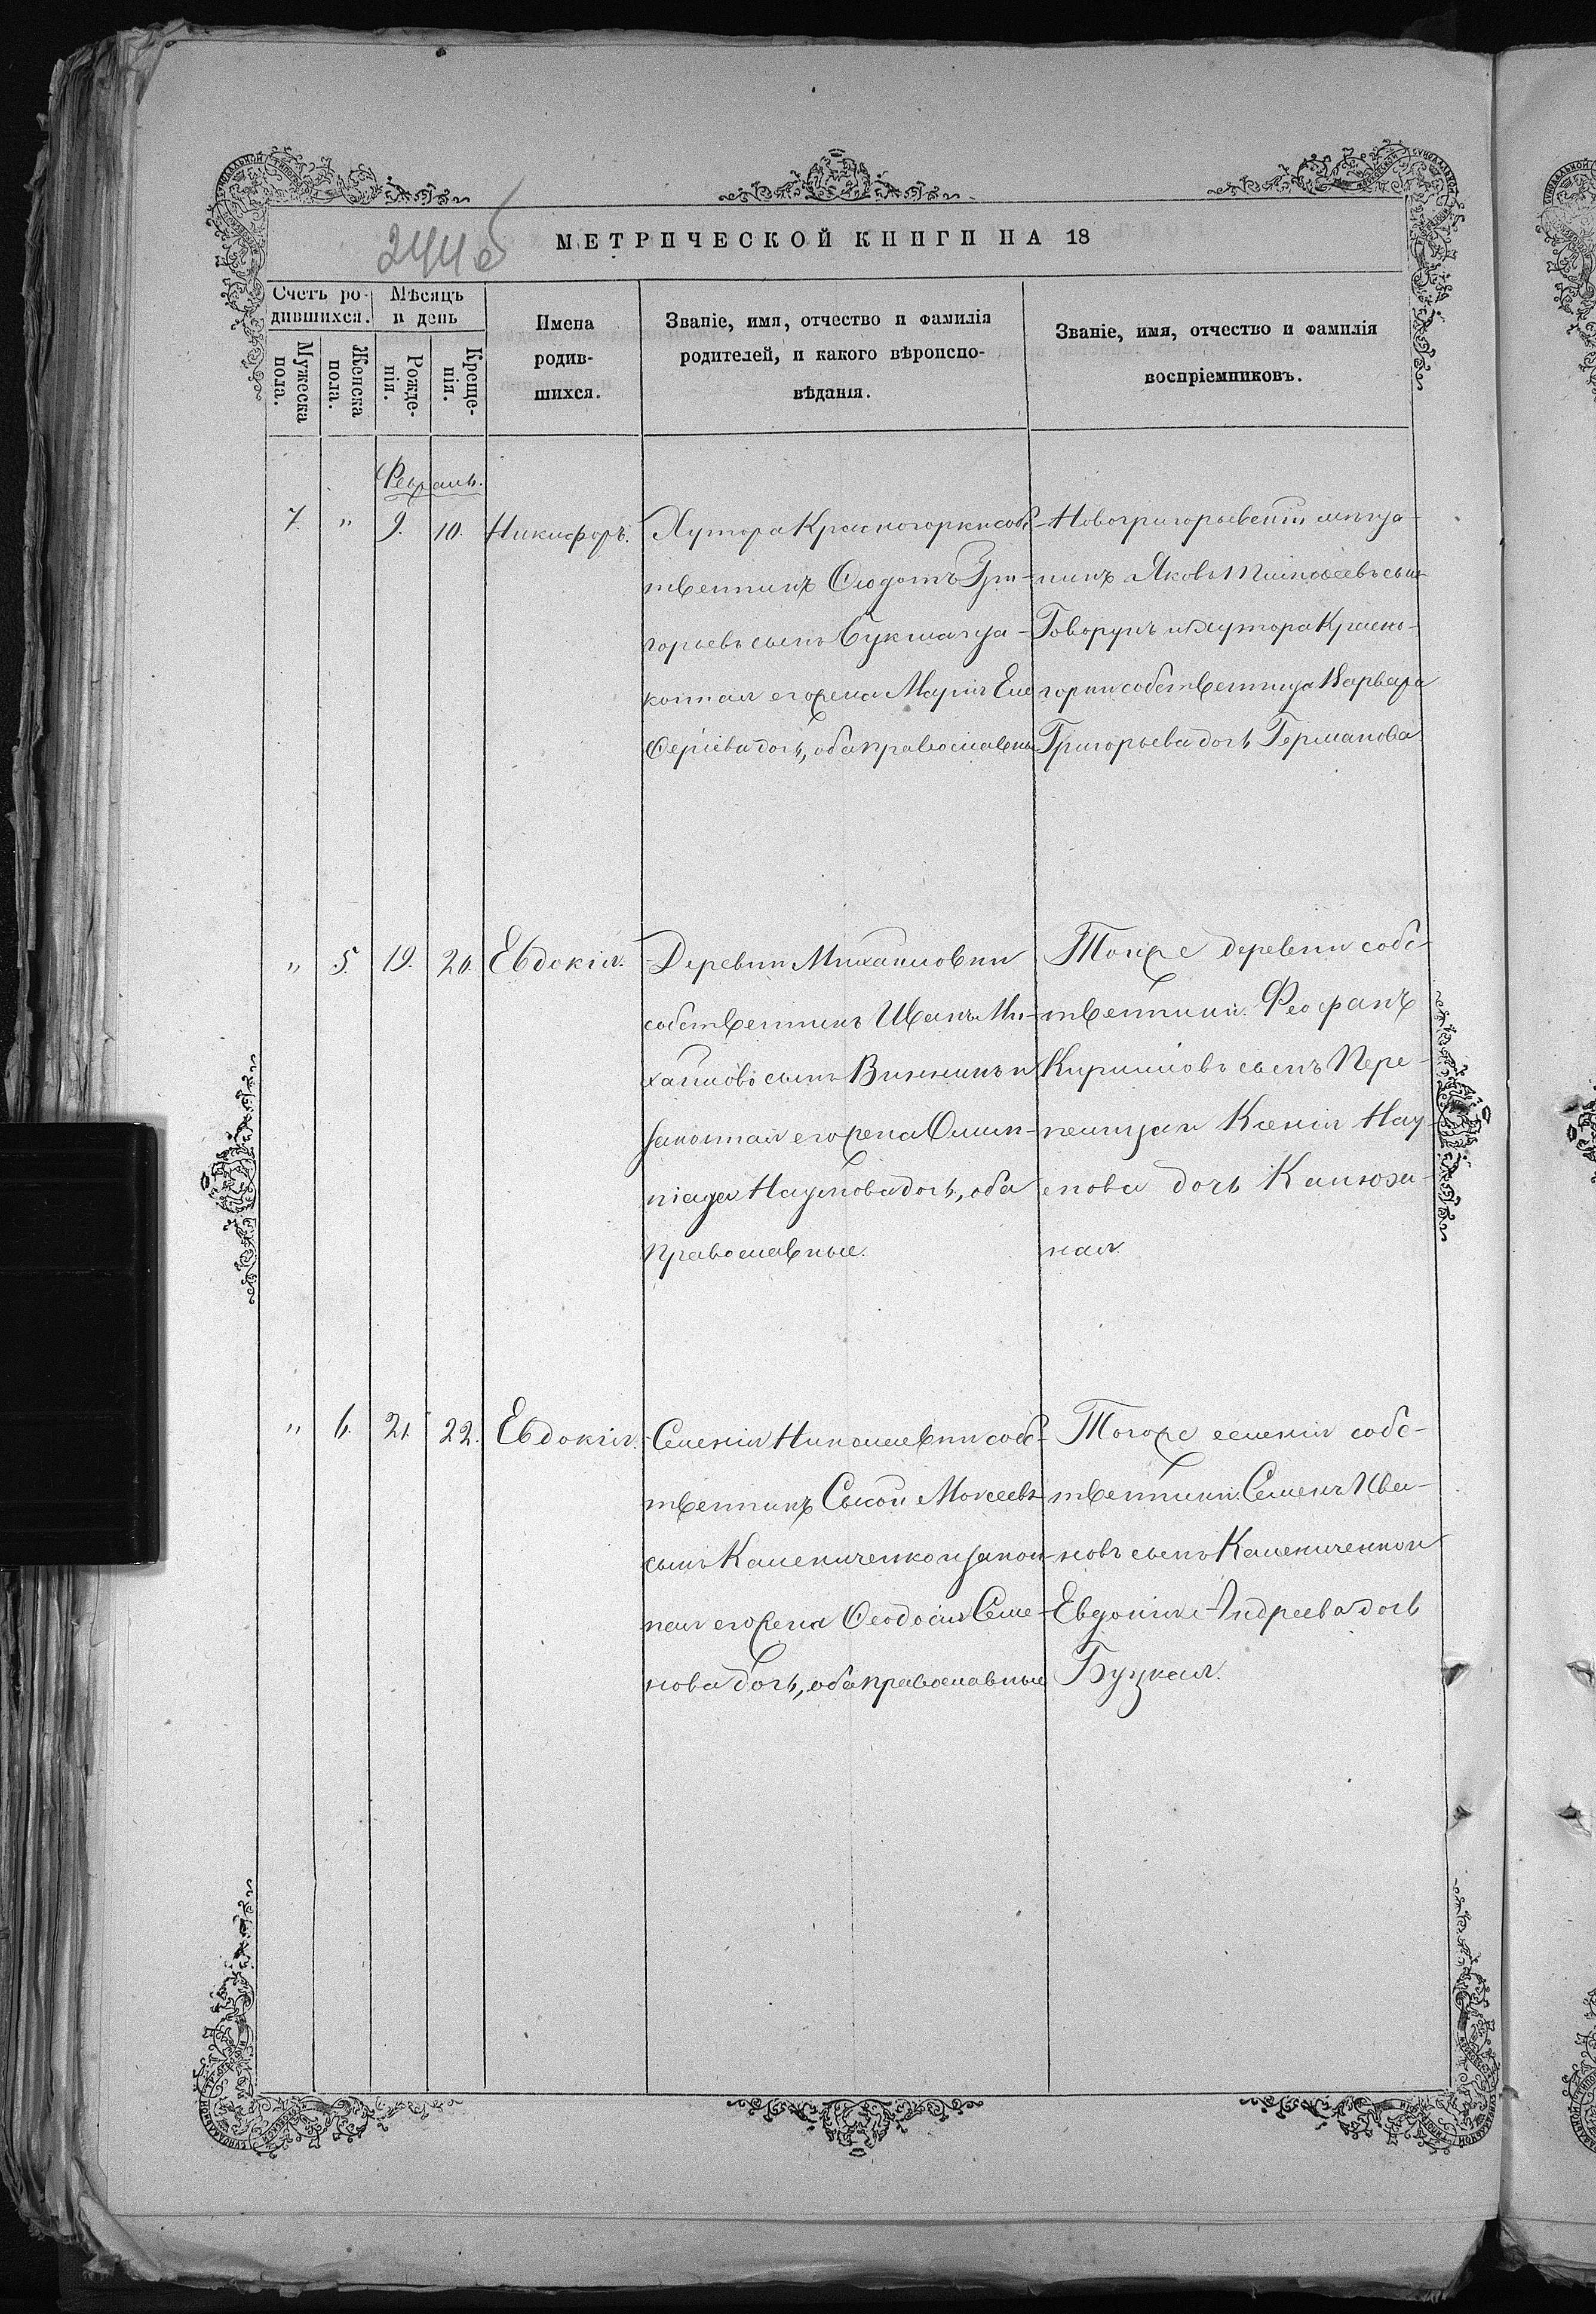 244об
МЕТРИЧЕСКОЙ КНИГИ НА 18
Счетъ ро-
дившихся.
Мѣсяцъ
и день
Мужеска
пола.
Женска
пола.
Рожде-
нія.
Креще-
нія.
Имена
родив-
шихся.
Званіе, имя, отчество и фамилія
родителей, и какого вѣроиспо-
вѣданія.
Званіе, имя, отчество и фамилія
воспріемниковъ.
Февраль.
7. " 9. 10. Никифоръ.
Хутора Красногорки соб-
ственникъ Ѳеодотъ Гри-
горьевъ сынъ и за-
конная его жена Марія
Ѳеріева дочь, оба православные
Новогригорьевскій мѣща-
нинъ Яковъ сынъ
Говорунъ и хутора Красно-
горки собственница Варвара
Григорьева дочь Германова
" 5. 19. 20. Евдокія.
Деревни Михайловки
собственникъ Иванъ Ми-
хайловъ сынъ и
законная его жена Олим-
піада Наумова дочь, оба
православные.
Тойже деревни собс-
твенники: Феофанъ
Кириловъ сынъ Пере-
и Ксенія Нау-
мова дочь
ная.
" 6. 21. 22. Евдокія.
Селенія Николаевки собс-
твенникъ Сысой Мокеевъ
сынъ Камениченко и закон-
ная его жена Ѳеодосія Семе-
нова дочь, оба православные
Тогоже селенія собс-
твенники: Семенъ Ива-
новъ сынъ Камениченко и
Евдокія Андреева дочь
Буцкая.